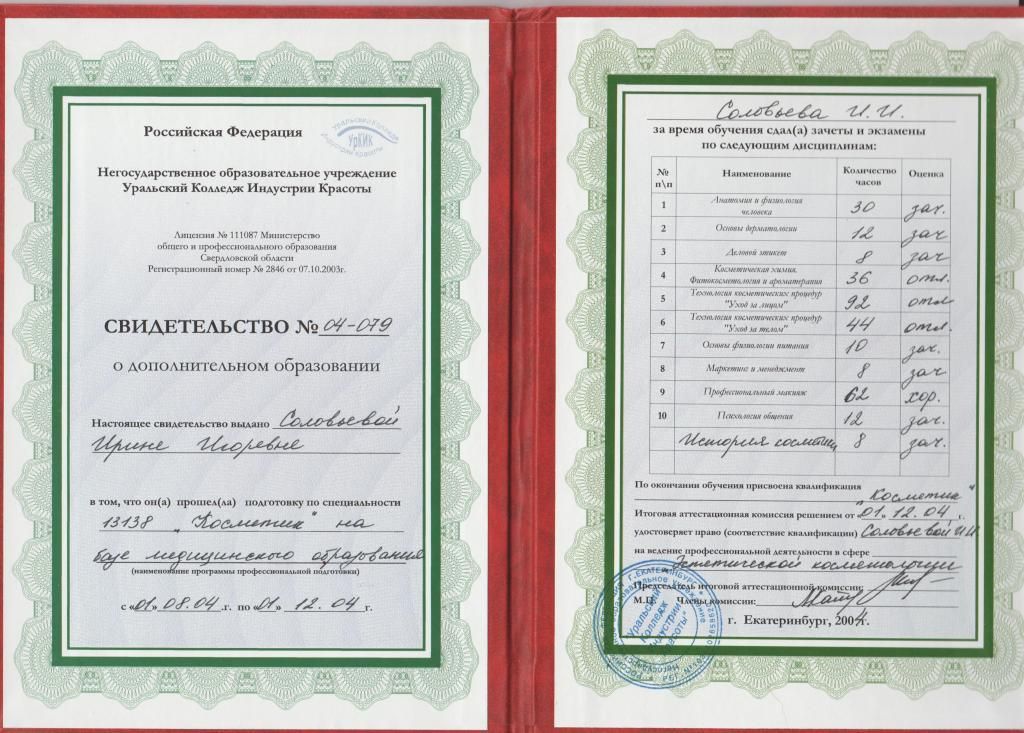 Российская Федерация
Уральский Колледж
УрКИК
Индустрии Красоты
Негосударственное образовательное учреждение
Уральский Колледж Индустрии Красоты
Лицензия № 111087 Министерство
общего и профессионального образования
Свердловской области
Регистрационный номер № 2846 от 07.10.2003г.
СВИДЕТЕЛЬСТВО № 04-079
о дополнительном образовании
Настоящее свидетельство выдано Соловьевой
Ирине Игоревне
в том, что он(а) прошел(ла) подготовку по специальности
13138 „Косметик" на
базе медицинского образования
(наименование программы профессиональной подготовки)
с «01» 08.04 .г. по «01» 12.04 г.
Соловьева И.И.
за время обучения сдал(а) зачеты и экзамены
по следующим дисциплинам:
№ п\п Наименование Количество часов Оценка
1 Анатомия и физиология человека 30 зач.
2 Основы дерматологии 12 зач
3 Деловой этикет 8 зач
4 Косметическая химия. Фитокосметология и ароматерапия 36 отл.
5 Технология косметических процедур "Уход за лицом" 92 отл
6 Технология косметических процедур "Уход за телом" 44 отл.
7 Основы физиологии питания 10 зач.
8 Маркетинг и менеджмент 8 зач
9 Профессиональный макияж 62 хор.
10 Психология общения 12 зач.
История косметики 8 зач.
По окончании обучения присвоена квалификация
„Косметик"
Итоговая аттестационная комиссия решением от «01» 12.04 г.
удостоверяет право (соответствие квалификации) Соловьевой И И
на ведение профессиональной деятельности в сфере
Эстетической косметологии
Председатель итоговой аттестационной комиссии:
М.П. Члены комиссии:
г. Екатеринбург, 2004г.
Уральский
Колледж
Индустрии
Красоты